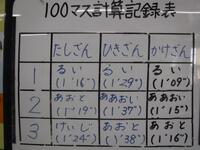 100マス計算記録表
たしざん ひきざん かけざん
1 るい るい るい
(1'16") (1'29") (1'09")
2 あおと ああおい ああおい
(1'19") (1'37") (1'15")
3 けいじ あおと あおと
(1'24") (1'38") (1'16")